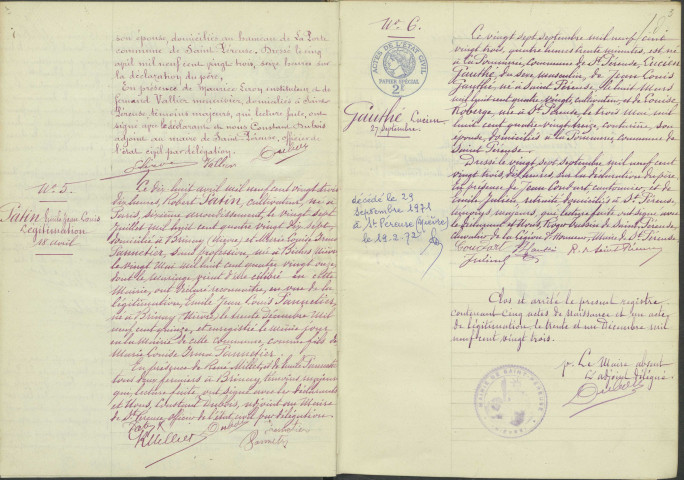 son épouse, domiciliés au hameau de La Porte
commune de Saint-Péreuse. Dressé le cinq
avril mil neuf cent vingt trois, seize heures sur
la déclaration du père,
En présence de Maurice instituteur et de
Fernand Vallier menuisier, domiciliés à Saint-
Péreuse témoins majeurs, qui lecture faite, ont
signé avec le déclarant et nous Constant Dubois
adjoint au maire de Saint-Péreuse, officier de
l'état civil par délégation.
Vallier Dubois
N° 5.
Patin Emile Jean Louis
Légitimation
18 avril
Ce dix huit avril mil neuf cent vingt trois
Robert Patin, cultivateur, né à
Paris, sixième arrondissement, le vingt sept
Juillet mil huit cent quatre vingt dix sept
domicilié à Brinay (Nièvre) et Marie Louise Irma
Pannetier, sans profession, née à Biches Nièvre
le vingt mai mil huit cent quatre vingt onze
dont le mariage vient d'être célébré en cette
Mairie, ont déclaré reconnaître, en vue de la
légitimation, Emile Jean Louis Pannetier,
né à Brinay Nièvre, le trente Décembre mil
neuf cent quinze, et enregistré le même jour
en la Mairie de cette commune, comme fils de
Marie Louise Irma Pannetier.
En présence de René Millet et de Pannetier
tous deux fermiers à Brinay témoins majeurs
que, lecture faite, ont signé avec les déclarants
et Nous, Constant Dubois, adjoint au Maire
de St Péreuse officier de l'état civil par délégation.
Dubois Pannetier
N° 6.
ACTES DE L'ETAT CIVIL
PAPIER SPECIAL
2F
Gauthé, Lucien
27 septembre.
décédé le 29
septembre 1971
à St Péreuse (Nièvre)
le 19.2.72
Ce vingt sept septembre mil neuf cent
vingt trois, quatre heures trente minutes, est né
à La Sommerie, commune de St Péreuse, Lucien
Gauthé du sexe masculin, de Jean Louis
Gauthé, né à Saint-Péreuse, le huit Mars
mil huit cent quatre vingt, cultivateur, et de Louise
Roberge, née à St Péreuse, le trois Mai mil
huit cent quatre vingt treize, couturière, son
épouse, domiciliés à La Sommerie commune de
Saint-Péreuse.
Dressé le vingt sept septembre mil neuf cent
vingt trois, dix heures, sur la déclaration du père,
en présence de Jean cantonnier, et de
Emile Julien, retraité domiciliés à St Péreuse,
témoins majeurs, qui lecture faite ont signé avec
le déclarant et Nous, Roger de Saint-Péreuse
chevalier de la Légion d'Honneur, Maire de St Péreuse.
Gauthé R. de Saint-Péreuse
Julien
Clos et arrêté le présent registre
contenant cinq actes de Naissance et un acte
de légitimation, le trente et un Décembre mil
neuf cent vingt trois.
p. Le Maire absent
L'adjoint délégué
Dubois